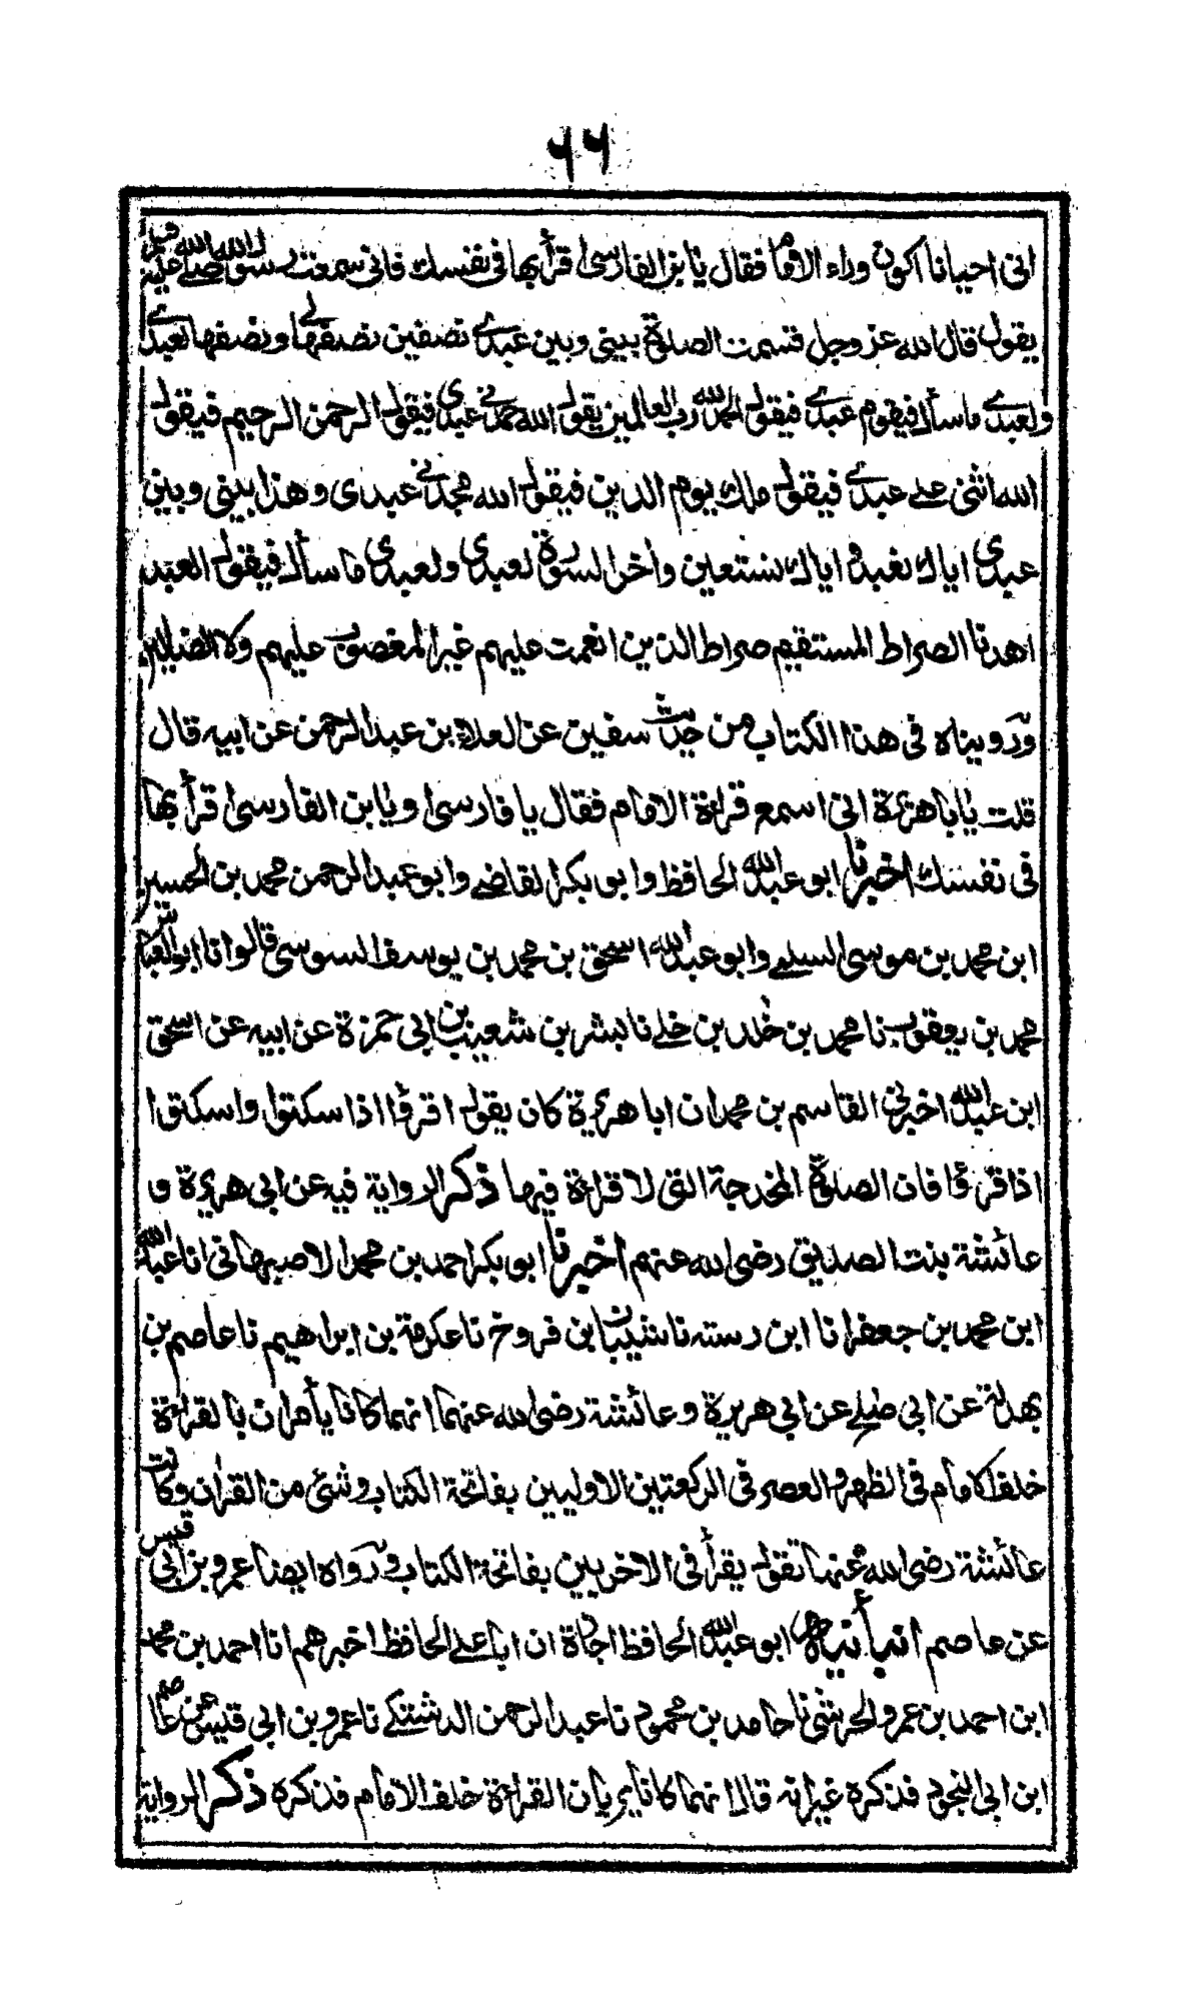 ٦٦
انى احيانا اكون وراء الامام فقال يا بن الفارسى اقرأ بها فى نفسك فانى سمعت رسول الله صلى الله عليه
يقول قال الله عز وجل قسمت الصلوة بينى وبين عبدى نصفين نصفها لى ونصفها لعبدى
ولعبدى ما سأل فيقوم عبدى فيقول الحمد لله رب العالمين يقول الله حمدنى عبدى فيقول الرحمن الرحيم فيقول
الله اثنى على عبدى فيقول ملك يوم الدين فيقول الله مجدنى عبدى وهذا بينى وبين
عبدى اياك نعبد و اياك نستعين وأخر السورة لعبدى ولعبدى ما سأل فيقول العبد
اهدنا الصراط المستقيم صراط الذين انعمت عليهم غير المغضوب عليهم ولا الضالين
ورويناه فى هذا الكتاب من حديث سفين عن العلاء بن عبد الرحمن عن ابيه قال
قلت يا ابا هريرة انى اسمع قراءة الامام فقال يا فارسى او يا بن الفارسى اقرأ بها
فى نفسك اخبرنا ابو عبد الله الحافظ وابو بكر القاضى وابو عبد الرحمن محمد بن الحسين
ابن محمد بن موسى السلمى وابو عبد الله اسحق بن محمد بن يوسف السوسى قالوا انا ابو العباس
محمد بن يعقوب نا محمد بن خلد بن خلى نا بشر بن شعيب بن ابى حمزة عن ابيه عن اسحق
ابن عبد الله اخبرنى القاسم بن محمد ان ابا هريرة كان يقول اقرؤا اذا سكتوا واسكتوا
اذا قرؤا فان الصلوة المخدجة التى لا قراءة فيها ذكر الرواية فيه عن ابى هريرة و
عائشة بنت الصديق رضى الله عنهم اخبرنا ابو بكر احمد بن محمد الاصبهانى انا عبد الله
ابن محمد بن جعفر انا ابن رسته نا شيبان بن فروخ نا عكرمة بن ابراهيم نا عاصم بن
بهدلة عن ابى صلح عن ابى هريرة و عائشة رضى الله عنهما انهما كانا يأمران بالقراءة
خلف الامام فى الظهر والعصر فى الركعتين الاوليين بفاتحة الكتاب وشئ من القران وكانت
عائشة رضى الله عنها تقول يقرأ فى الاخريين بفاتحة الكتاب ورواه ايضا عمرو بن ابى قيس
عن عاصم انبأنيه ابو عبد الله الحافظ اجازة ان ابا على الحافظ اخبرهم انا احمد بن محمد
ابن احمد بن عمرو الحرشى نا حامد بن محمود نا عبد الرحمن الدشتكى نا عمرو بن ابى قيس عن عاصم
ابن ابى النجود فذكره غير انه قال انهما كانا يريان القراءة خلف الامام فذكره ذكر الرواية